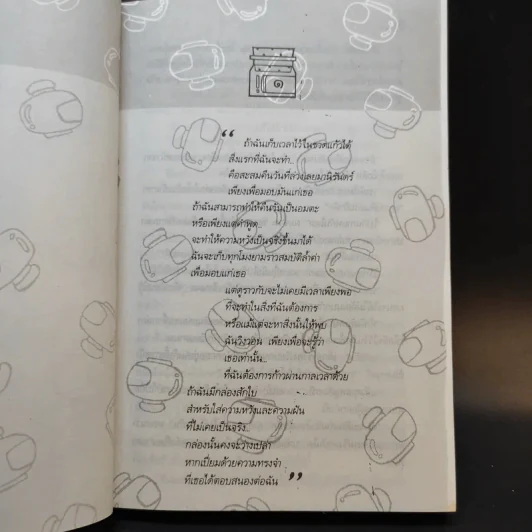 ๑
“ ถ้าฉันเก็บเวลาไว้ในขวดแก้วได้
สิ่งแรกที่ฉันจะทำ..
คือสะสมคืนวันที่ล่วงเลยมานิรันดร์
เพียงเพื่อมอบมันแก่เธอ
ถ้าฉันสามารถทำให้คืนวันเป็นอมตะ
หรือเพียงแต่คำพูด..
จะทำให้ความหวังเป็นจริงขึ้นมาได้
ฉันจะเก็บทุกโมงยามราวสมบัติล้ำค่า
เพื่อมอบแก่เธอ
แต่ดูราวกับจะไม่เคยมีเวลาเพียงพอ
ที่จะทำในสิ่งที่ฉันต้องการ
หรือแม้แต่จะหาสิ่งนั้นให้พบ
ฉันวิงวอน เพียงเพื่อจะรู้ว่า
เธอเท่านั้น..
ที่ฉันต้องการก้าวผ่านกาลเวลาด้วย
ถ้าฉันมีกล่องสักใบ
สำหรับใส่ความหวังและความฝัน
ที่ไม่เคยเป็นจริง..
กล่องนั้นคงจะว่างเปล่า
หากเปี่ยมด้วยความทรงจำ
ที่เธอได้ตอบสนองต่อฉัน ”